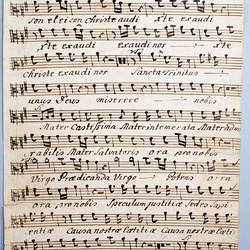 son eleison Christe audi xte exaudi
xte exaudi exaudi nos xte
Christe exaudi nos Sancta Trinitas
unus Deus miserere nobis
Mater Castissima Mater intemerata Mater
rabilis Mater Salvatoris ora pro nobis
Virgo Prædicanda Virgo Potens ora
ora pro nobis Speculum justitiæ Sedes Sapi
entiæ Causa nostræ Lætitiæ Causa nostræ Læti